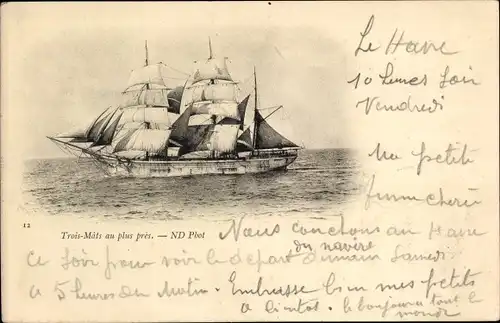 Le Havre
10 heures Soir
Vendredi
Ma petite
femme chérie
12
Trois-Mâts au plus près. — ND Phot
Nous couchons au Havre
ce Soir pour voir le départ demain Samedi
du navire
à 5 heures du Matin. Embrasse bien mes petits
à bientôt. le bonjour à tout le
monde